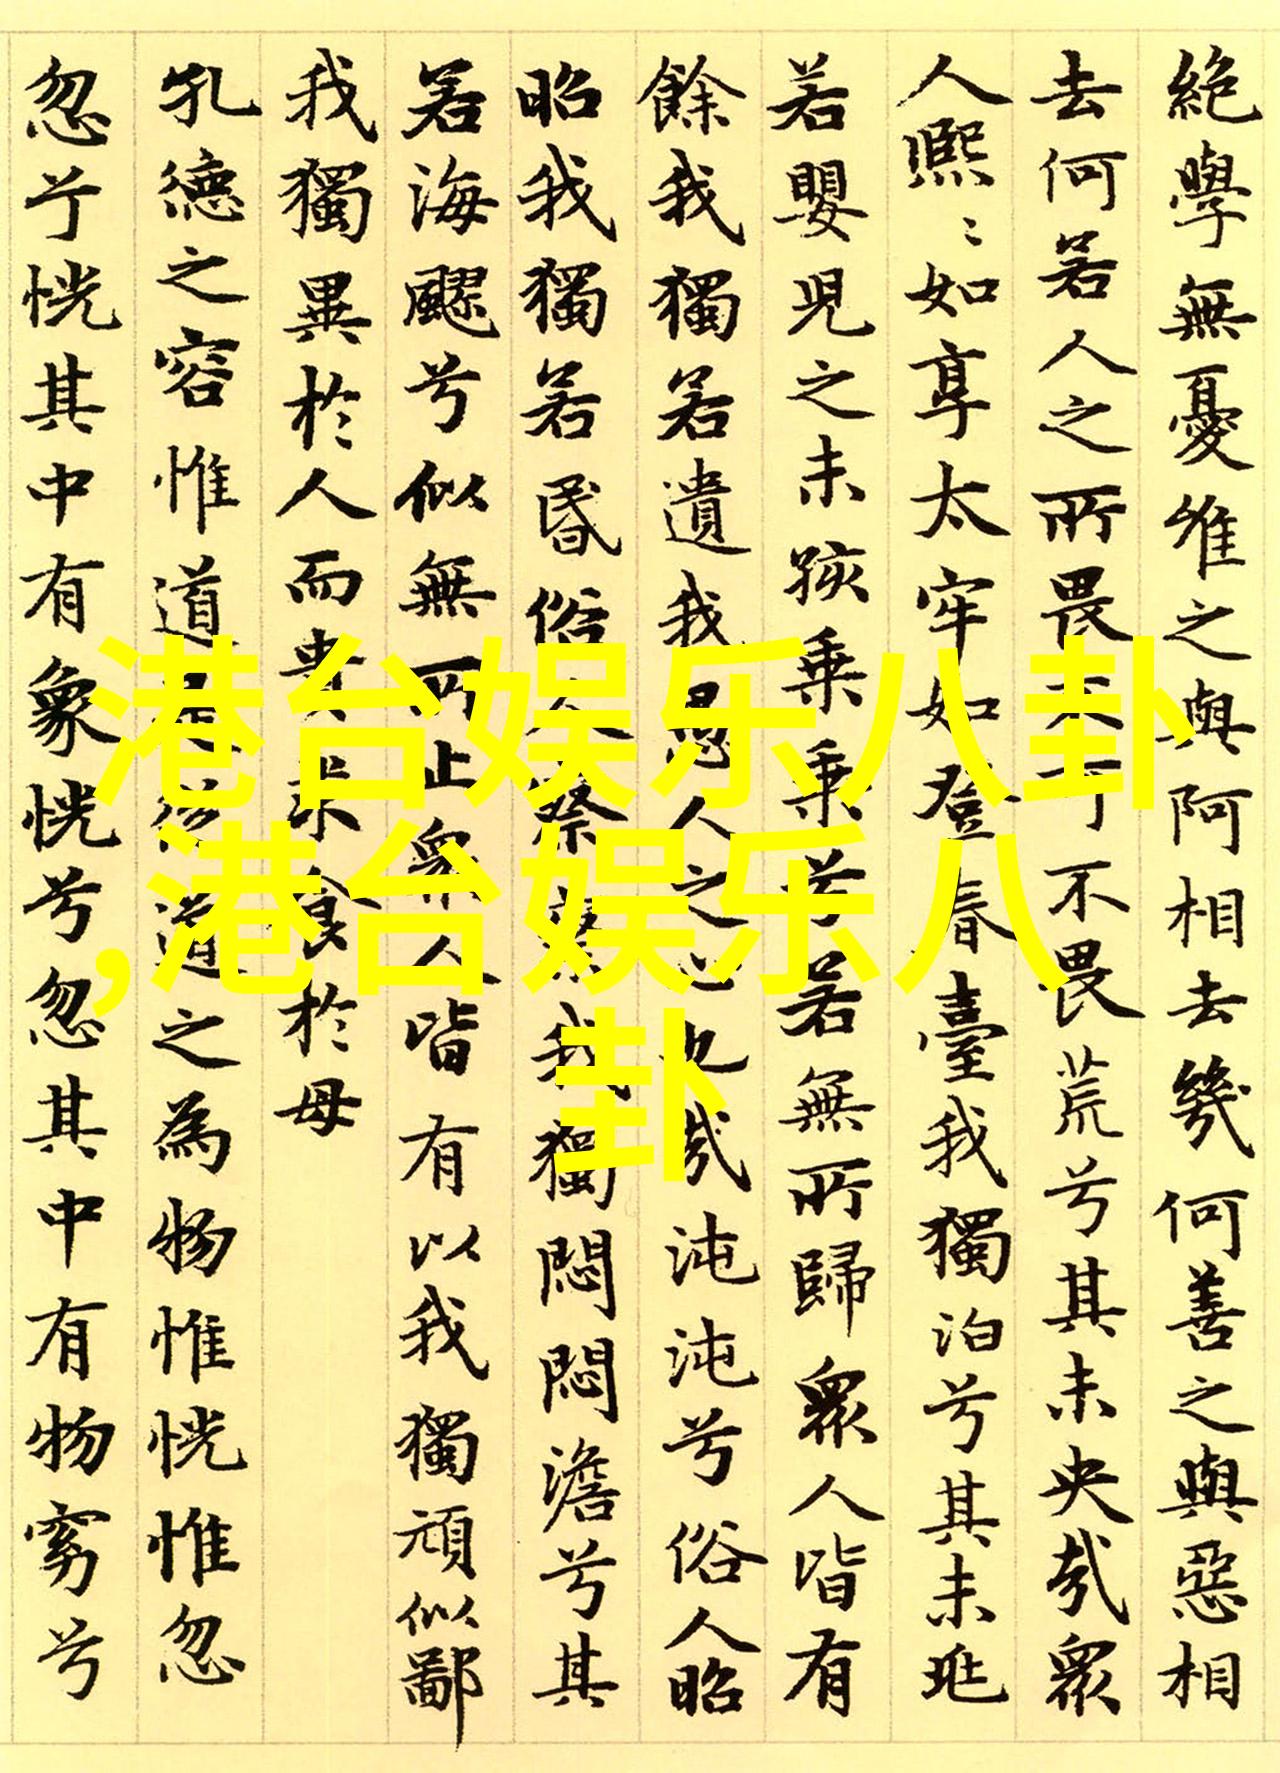 絶學無憂唯之與阿相去幾何善之與惡相
去何若人之所畏不可不畏荒兮其未央哉衆
人熙〻如享太牢如登春臺我獨泊兮其未兆
若嬰兒之未孩乗乗兮若無所歸衆人皆有
餘我獨若遺我愚人之心也哉沌沌兮俗人昭
昭我獨若昏俗人察察我獨悶悶澹兮其
若海飂兮似無所止衆人皆有以我獨頑似鄙
我獨異於人而貴求食於母
孔德之容惟道是從道之為物惟恍惟忽
忽兮恍其中有象恍兮忽其中有物窈兮
港台娱乐八卦
,港台娱乐八
卦